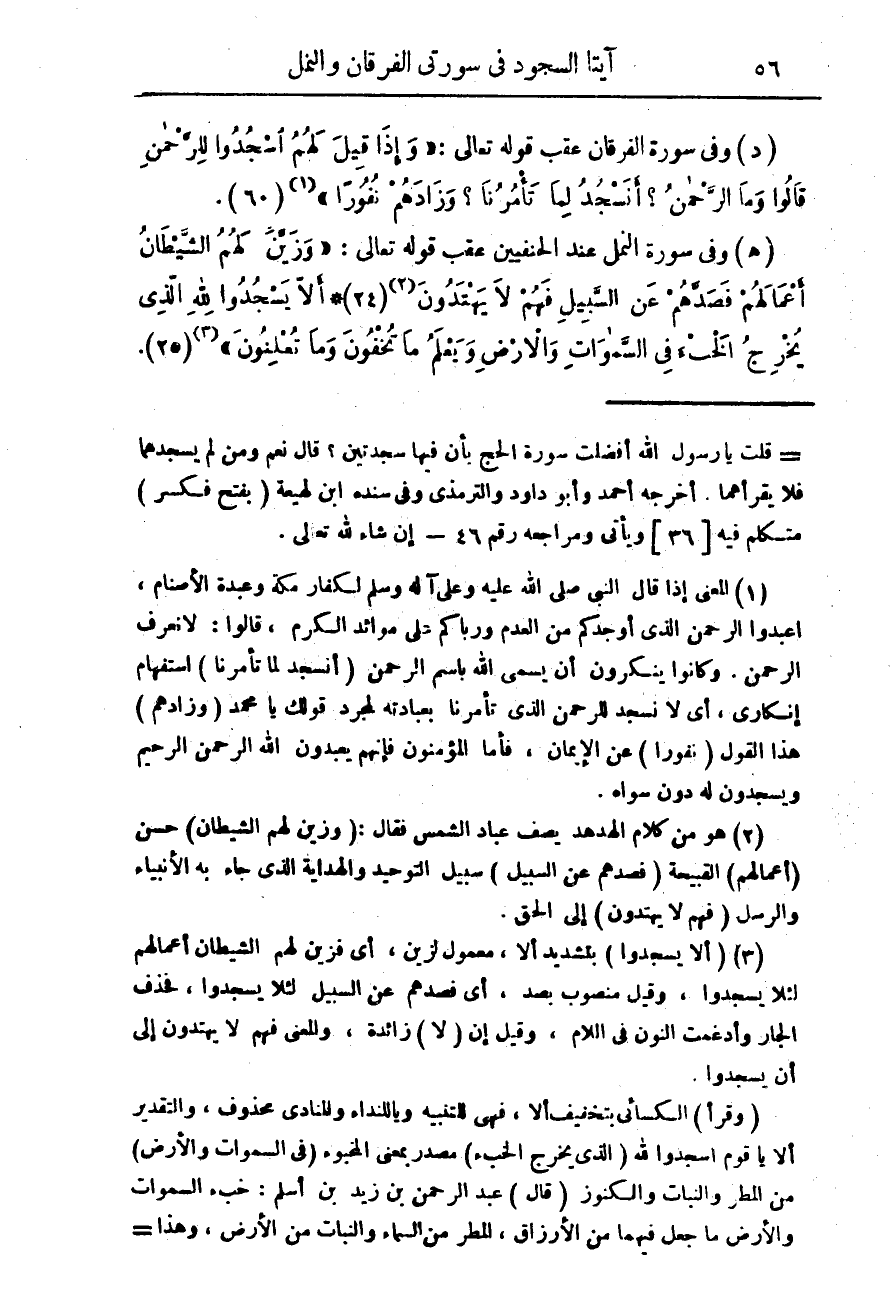 ٥٦ آيتا السجود فى سورتى الفرقان والنمل
( د ) وفى سورة الفرقان عقب قوله تعالى : « وَإِذَا قِيلَ لَهُمُ اسْجُدُوا لِلرَّحْمٰنِ
قَالُوا وَمَا الرَّحْمٰنُ ؟ أَنَسْجُدُ لِمَا تَأْمُرُنَا ؟ وَزَادَهُمْ نُفُورًا »(١) (٦٠) .
( ه ) وفى سورة النمل عند الحنفيين عقب قوله تعالى : « وَزَيَّنَ لَهُمُ الشَّيْطَانُ
أَعْمَالَهُمْ فَصَدَّهُمْ عَنِ السَّبِيلِ فَهُمْ لاَ يَهْتَدُونَ(٢) (٢٤)* أَلاَّ يَسْجُدُوا لِلهِ الَّذِى
يُخْرِجُ الْخَبْءَ فِى السَّمٰوَاتِ وَالْارْضِ وَيَعْلَمُ مَا تُخْفُونَ وَمَا تُعْلِنُونَ »(٣) (٢٥).
= قلت يا رسول الله أفضلت سورة الحج بأن فيها سجدتين ؟ قال نعم ومن لم يسجدهما
فلا يقرأهما . أخرجه أحمد وأبو داود والترمذى وفى سنده ابن لهيعة ( بفتح فكسر )
متكلم فيه [ ٣٦ ] ويأتى ومراجعه رقم ٤٦ – إن شاء لله تعالى .
(١) المعنى إذا قال النبي صلى الله عليه وعلى آله وسلم لكفار مكة وعبدة الأصنام ،
اعبدوا الرحمن الذى أوجدكم من العدم ورباكم على موائد الكرم ، قالوا : لانعرف
الرحمن . وكانوا ينكرون أن يسمى الله باسم الرحمن ( أنسجد لما تأمرنا ) استفهام
إنكارى ، أى لا نسجد للرحمن الذى تأمرنا بعبادته لمجرد قولك يا محمد ( وزادهم )
هذا القول ( نفورا ) عن الإيمان ، فأما المؤمنون فإنهم يعبدون الله الرحمن الرحيم
ويسجدون له دون سواه .
(٢) هو من كلام الهدهد يصف عباد الشمس فقال :( وزين لهم الشيطان) حسن
(أعمالهم) القبيحة ( فصدهم عن السبيل ) سبيل التوحيد والهداية الذى جاء به الأنبياء
والرسل ( فهم لا يهتدون ) إلى الحق .
(٣) ( ألا يسجدوا ) بتشديد ألا ، معمول لزين ، أى فزين لهم الشيطان أعمالهم
لئلا يسجدوا ، وقيل منصوب بصد ، أى فصدهم عن السبيل لئلا يسجدوا ، فحذف
الجار وأدغمت النون فى اللام ، وقيل إن ( لا ) زائدة ، والمعنى فهم لا يهتدون إلى
أن يسجدوا .
( وقرأ ) الكسائى بتخفيف ألا ، فهى للتنبيه وياللنداء والمنادى محذوف ، والتقدير
ألا يا قوم اسجدوا لله ( الذى يخرج الخبء ) مصدر بمعنى المخبوء (فى السموات والأرض)
من المطر والنبات والكنوز ( قال ) عبد الرحمن بن زيد بن أسلم : خبء السموات
والأرض ما جعل فيهما من الأرزاق ، المطر من السماء والنبات من الأرض ، وهذا =